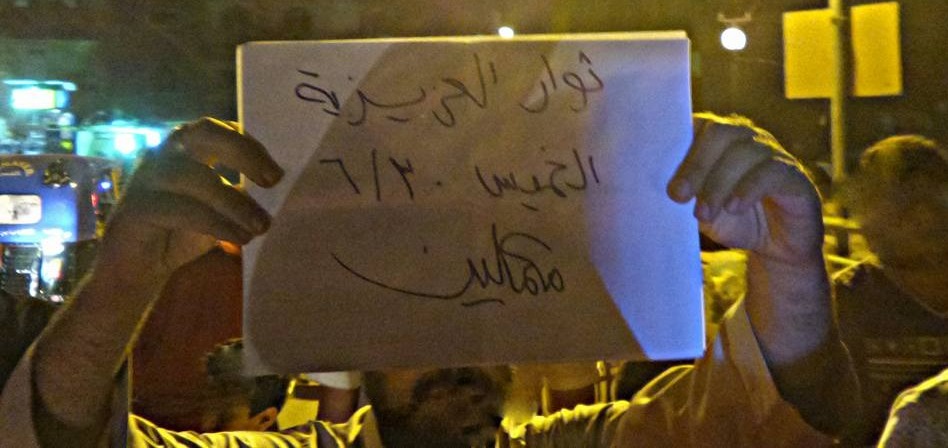 ثوار العزيزية
الخميس ٦/٣٠
مكملين